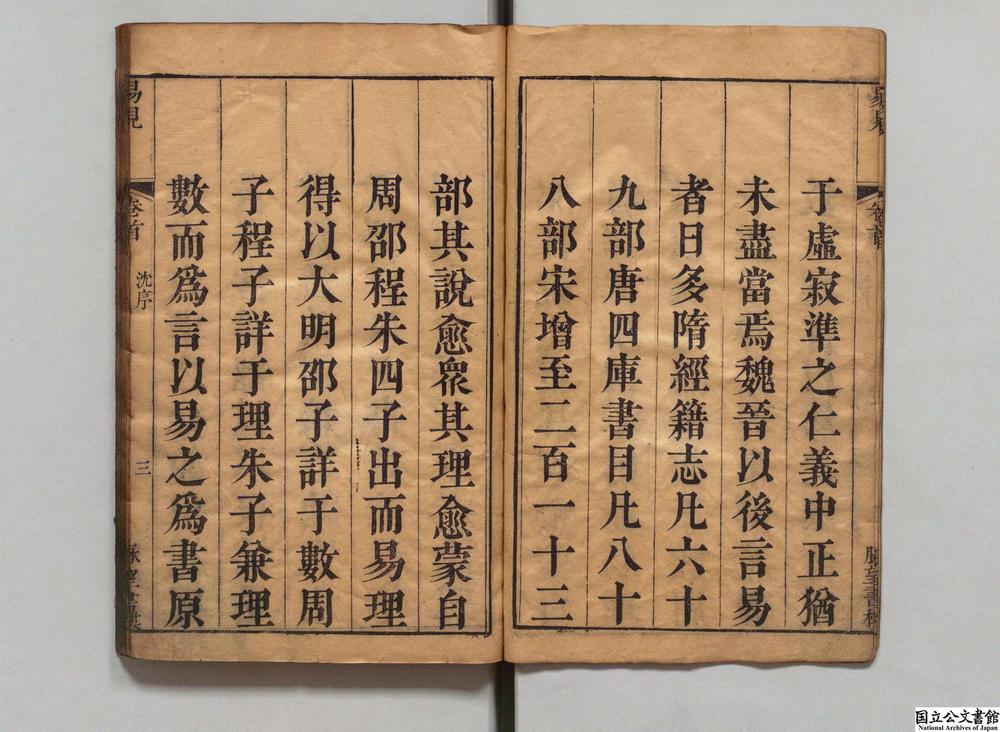 于虛寂準之仁義中正猶
未盡當焉魏晉以後言易
者日多隋經籍志凡六十
九部唐四庫書目凡八十
八部宋增至二百一十三
部其說愈衆其理愈蒙自
周邵程朱四子出而易理
得以大明邵子詳于數周
子程子詳于理朱子兼理
數而爲言以易之爲書原
易見
卷首
沈序
三
国立公文書館
National Archives of Japan